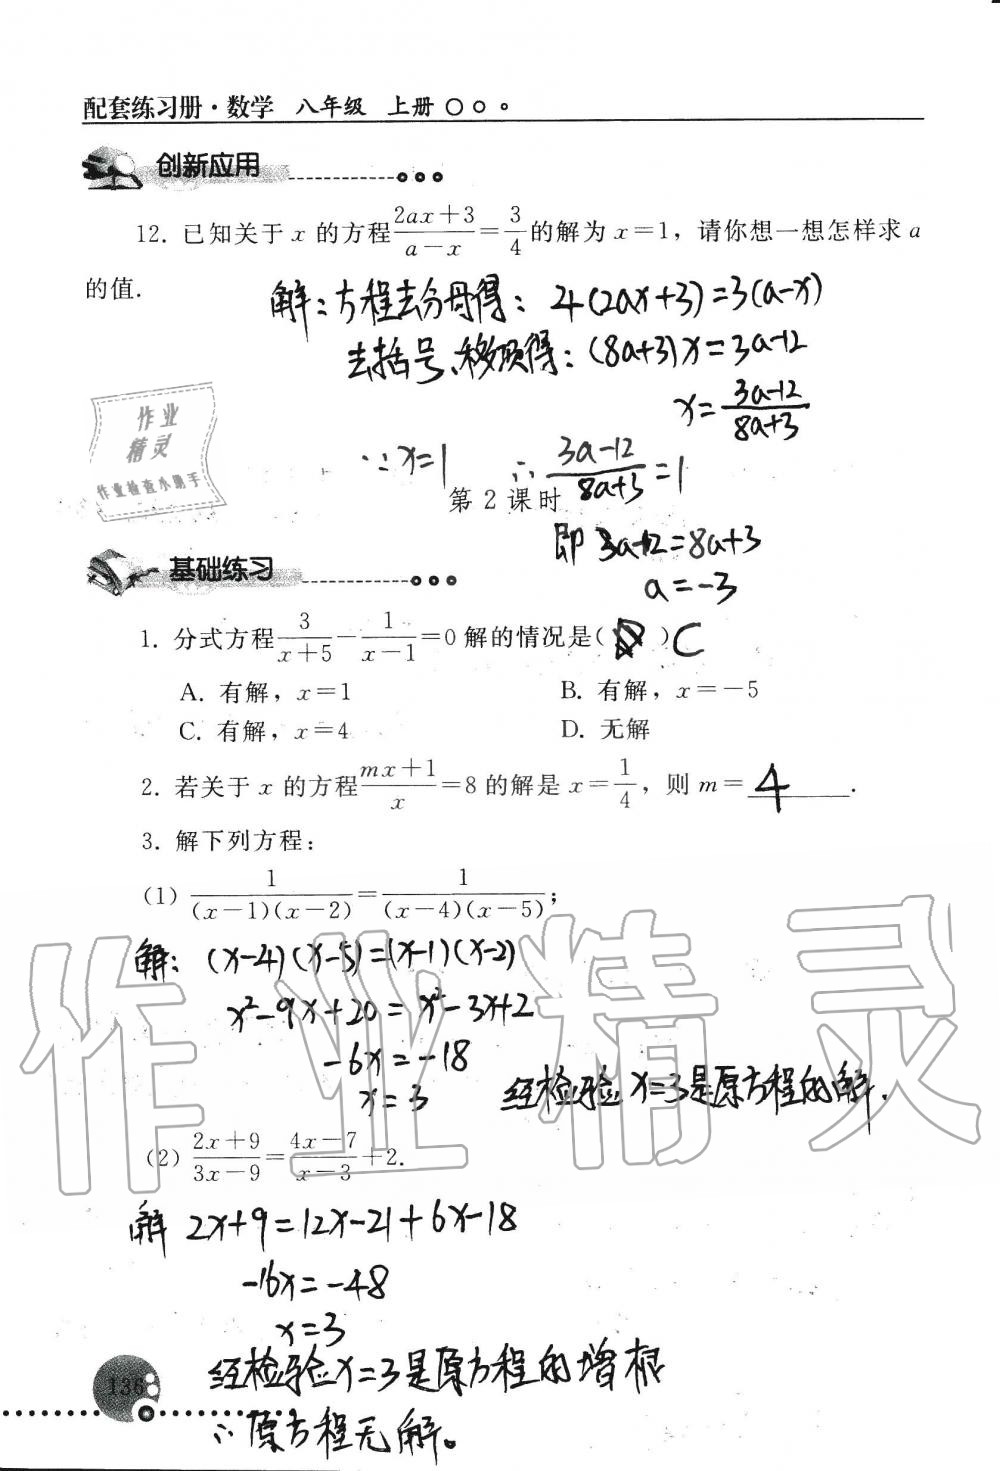 配套练习册·数学 八年级 上册
创新应用
12. 已知关于 x 的方程 (2ax+3)/(a-x) = 3/4 的解为 x=1, 请你想一想怎样求 a
的值.
解:方程去分母得: 4(2ax+3)=3(a-x)
去括号、移项得: (8a+3)x=3a-12
x=(3a-12)/(8a+3)
∵x=1 ∴(3a-12)/(8a+3)=1
第 2 课时
即 3a-12=8a+3
a=-3
作业
精灵
作业检查小助手
基础练习
1. 分式方程 3/(x+5) - 1/(x-1) = 0 解的情况是( ) C
A. 有解, x=1 B. 有解, x=-5
C. 有解, x=4 D. 无解
2. 若关于 x 的方程 (mx+1)/x = 8 的解是 x=1/4, 则 m= 4 .
3. 解下列方程:
(1) 1/((x-1)(x-2)) = 1/((x-4)(x-5));
解: (x-4)(x-5)=(x-1)(x-2)
x²-9x+20=x²-3x+2
-6x=-18
x=3 经检验x=3是原方程的解.
(2) (2x+9)/(3x-9) = (4x-7)/(x-3) + 2.
解 2x+9=12x-21+6x-18
-16x=-48
x=3
经检验x=3是原方程的增根
∴原方程无解。
136
作业精灵